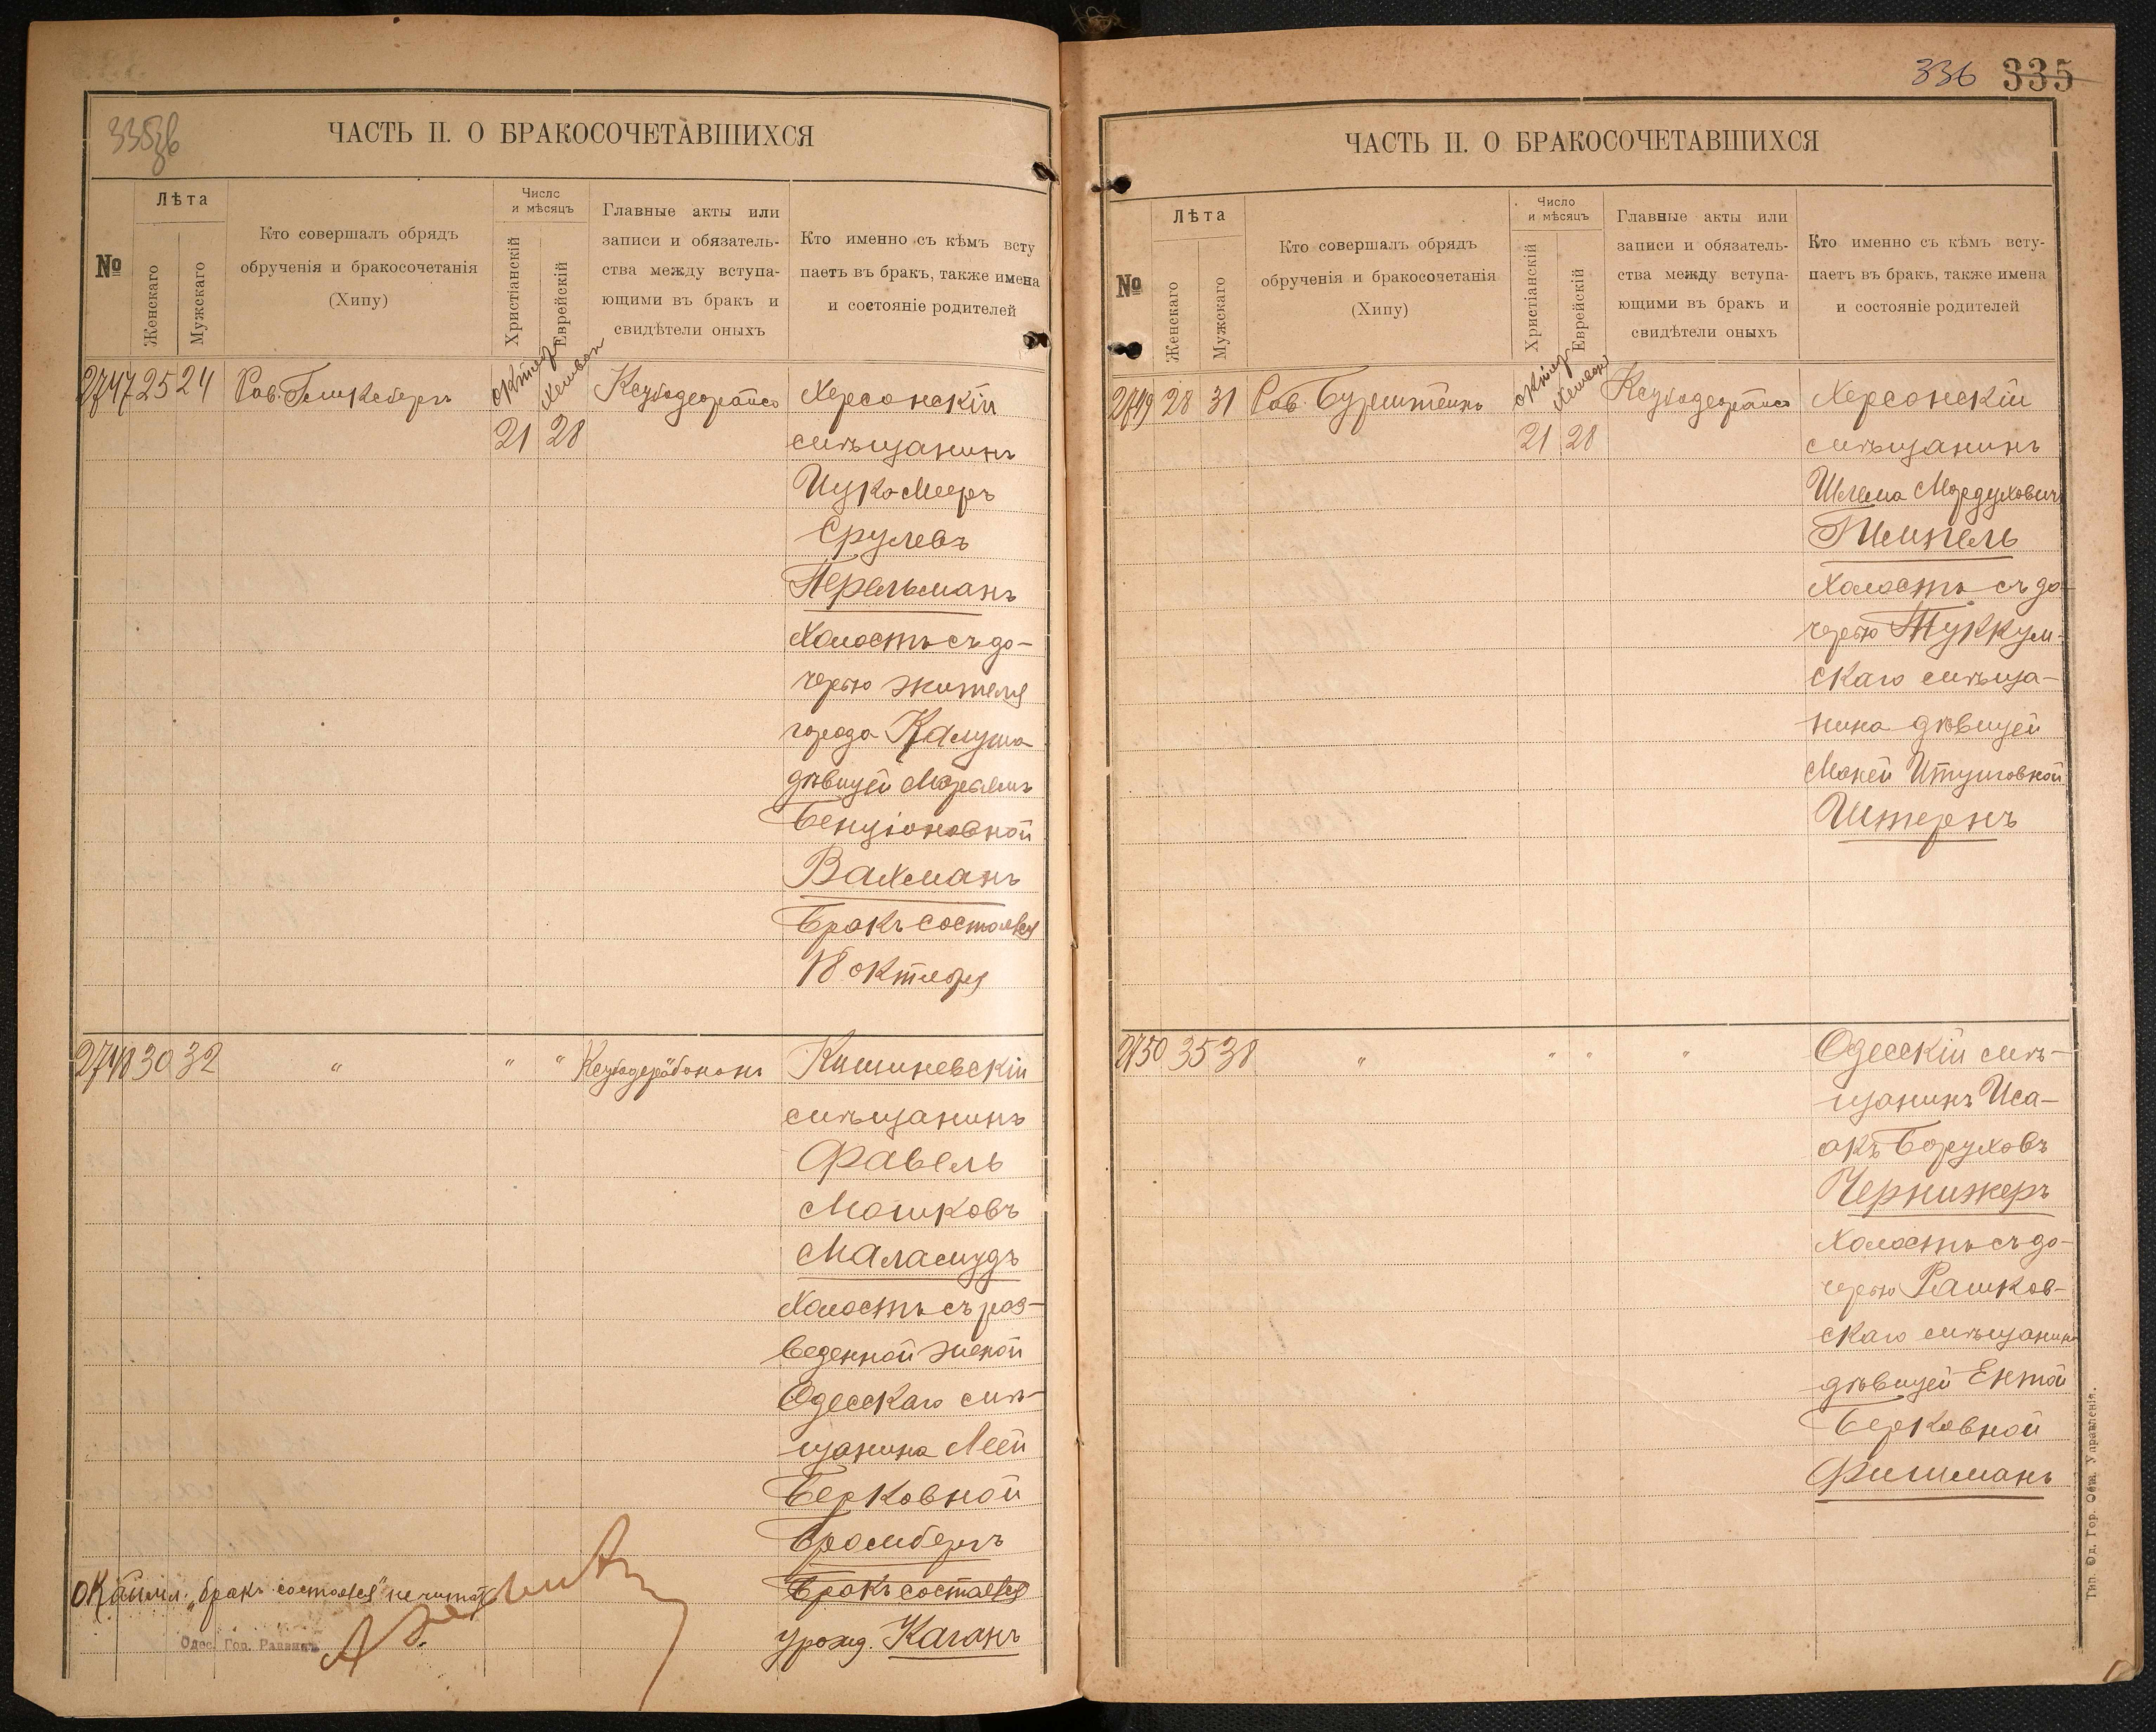 335зв
ЧАСТЬ II. О БРАКОСОЧЕТАВШИХСЯ
№
Лѣта
Женскаго
Мужскаго
Кто совершалъ обрядъ
обрученія и бракосочетанія
(Хипу)
Число
и мѣсяцъ
Христіанскій
Еврейскій
Главные акты или
записи и обязатель-
ства между вступа-
ющими въ бракъ и
свидѣтели оныхъ
Кто именно съ кѣмъ всту
паетъ въ бракъ, также имена
и состояніе родителей
2747 25 24
Рав.
21 28
Херсонскій
мѣщанинъ
Ицко-Мееръ
Срулевъ
Перельманъ
холостъ съ до-
черью жителя
города Калуша
дѣвицей Марьямъ
Бенціоновной
Вахманъ
Бракъ состоялся
18 октября
2748 30 32
"
" "
Кишиневскій
мѣщанинъ
Фавель
Мошковъ
Маламудъ
холостъ съ раз-
веденной женой
Одесскаго мѣ-
щанина Леей
Берковной
Бромбергъ
Бракъ состоялся
урожд. Каганъ
"бракъ состоялся" не читать
Одес. Гор. Раввинъ
336 335
ЧАСТЬ II. О БРАКОСОЧЕТАВШИХСЯ
№
Лѣта
Женскаго
Мужскаго
Кто совершалъ обрядъ
обрученія и бракосочетанія
(Хипу)
Число
и мѣсяцъ
Христіанскій
Еврейскій
Главные акты или
записи и обязатель-
ства между вступа-
ющими въ бракъ и
свидѣтели оныхъ
Кто именно съ кѣмъ всту-
паетъ въ бракъ, также имена
и состояніе родителей
2749 28 31
Рав. Бурштейнъ
21 28
Херсонскій
мѣщанинъ
Шлема Мордуховичъ
холостъ съ до-
черью Туккум-
скаго мѣща-
нина дѣвицей
Штернъ
2750 35 38
"
" "
"
Одесскій мѣ-
щанинъ Иса-
акъ Боруховъ
Чернижеръ
холостъ съ до-
черью Рашков-
скаго мѣщанина
дѣвицей Ентой
Берковной
Фишманъ
Тип. Од. Гор. Общ. Управленія.